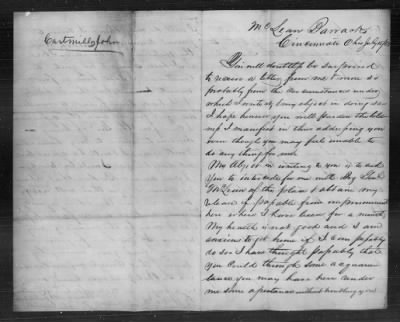 Cartmill, John
Mc Lean Barracks
Cincinnati Ohio July
You will doubtless be surprised
to receive a letter from me & more so
probably from the circumstances under
which I write & my object in doing so
I hope however you will pardon the
I manifest in thus addressing you
even though you may feel unable to
do any thing for me.
My object in writing to you is to ask
you to intercede for me with
McLean of this place & obtain my
release if possible from imprisonment
here where I have been for a month
My health is not good and I am
anxious to get home if I can possibly
do so I have thought probably that
you could through some acquain
tance you may have here render
me some assistance without troubling you